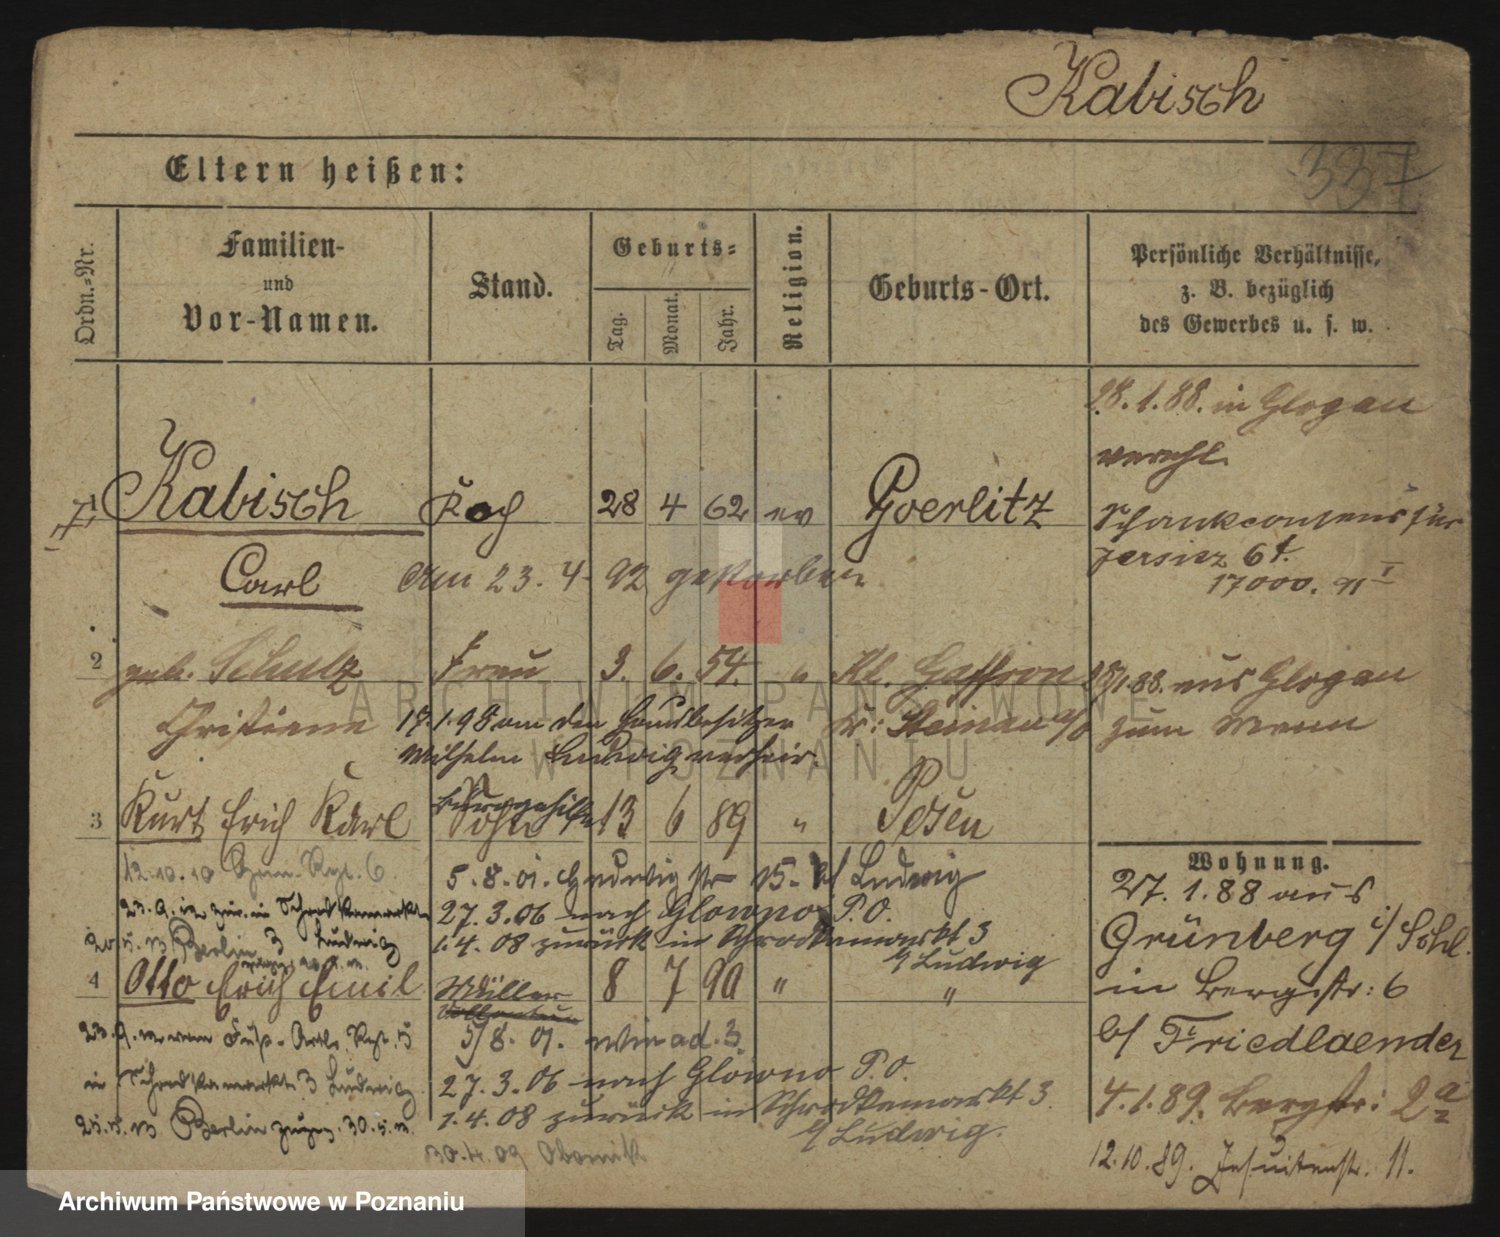 Kabisch
337
Eltern heißen:
Ordn.-Nr.
Familien-
und
Vor-Namen.
Stand.
Geburts=
Tag.
Monat.
Jahr.
Religion.
Geburts-Ort.
Persönliche Verhältnisse,
z. B. bezüglich
des Gewerbes u. s. w.
28.1.88. in Glogau
verehl.
1 Kabisch Koch 28 4 62 ev Goerlitz
Schankconsens für
Jersitz 6
17000. 91 I
Carl Am 23. 4. 92 gestorben
2 geb. Schulz Frau 3. 6. 54. " Kl. Gaffron
88. aus Glogau
Christiane 17.1.98 an den Hausbesitzer Kr: Steinau a/O
zum Mann
Wilhelm Ludwig verheir.
3 Kurt Erich Karl Sohn 13 6 89 " Posen
12.10.10 Rgt. 6
5.8.01. Hedwigstr 15. b/ Ludwig
23.9. in Schrodkamarkt
27.3.06 nach Glowno P.O.
Berlin 3 Ludwig
1.4.08 zurück in Schrodkamarkt 3
b/ Ludwig
4 Otto Erich Emil Müller 8 7 90 " "
23.9. Fuß-Artl. Rgt. 5
5/8. 01. wie ad. 3.
in Schrodkamarkt 3 Ludwig
27.3.06 nach Glowno P.O.
1.4.08 zurück in Schrodkamarkt 3
Berlin 30.5.
b/ Ludwig.
30.4.09 Obornik
Wohnung.
27.1.88 aus
Grünberg i/Schl.
in Bergstr: 6
b/ Friedlaender
4.1.89. Bergstr: 2a
12.10.89. Jesuitenstr. 11.
ARCHIWUM PAŃSTWOWE
W POZNANIU
Archiwum Państwowe w Poznaniu